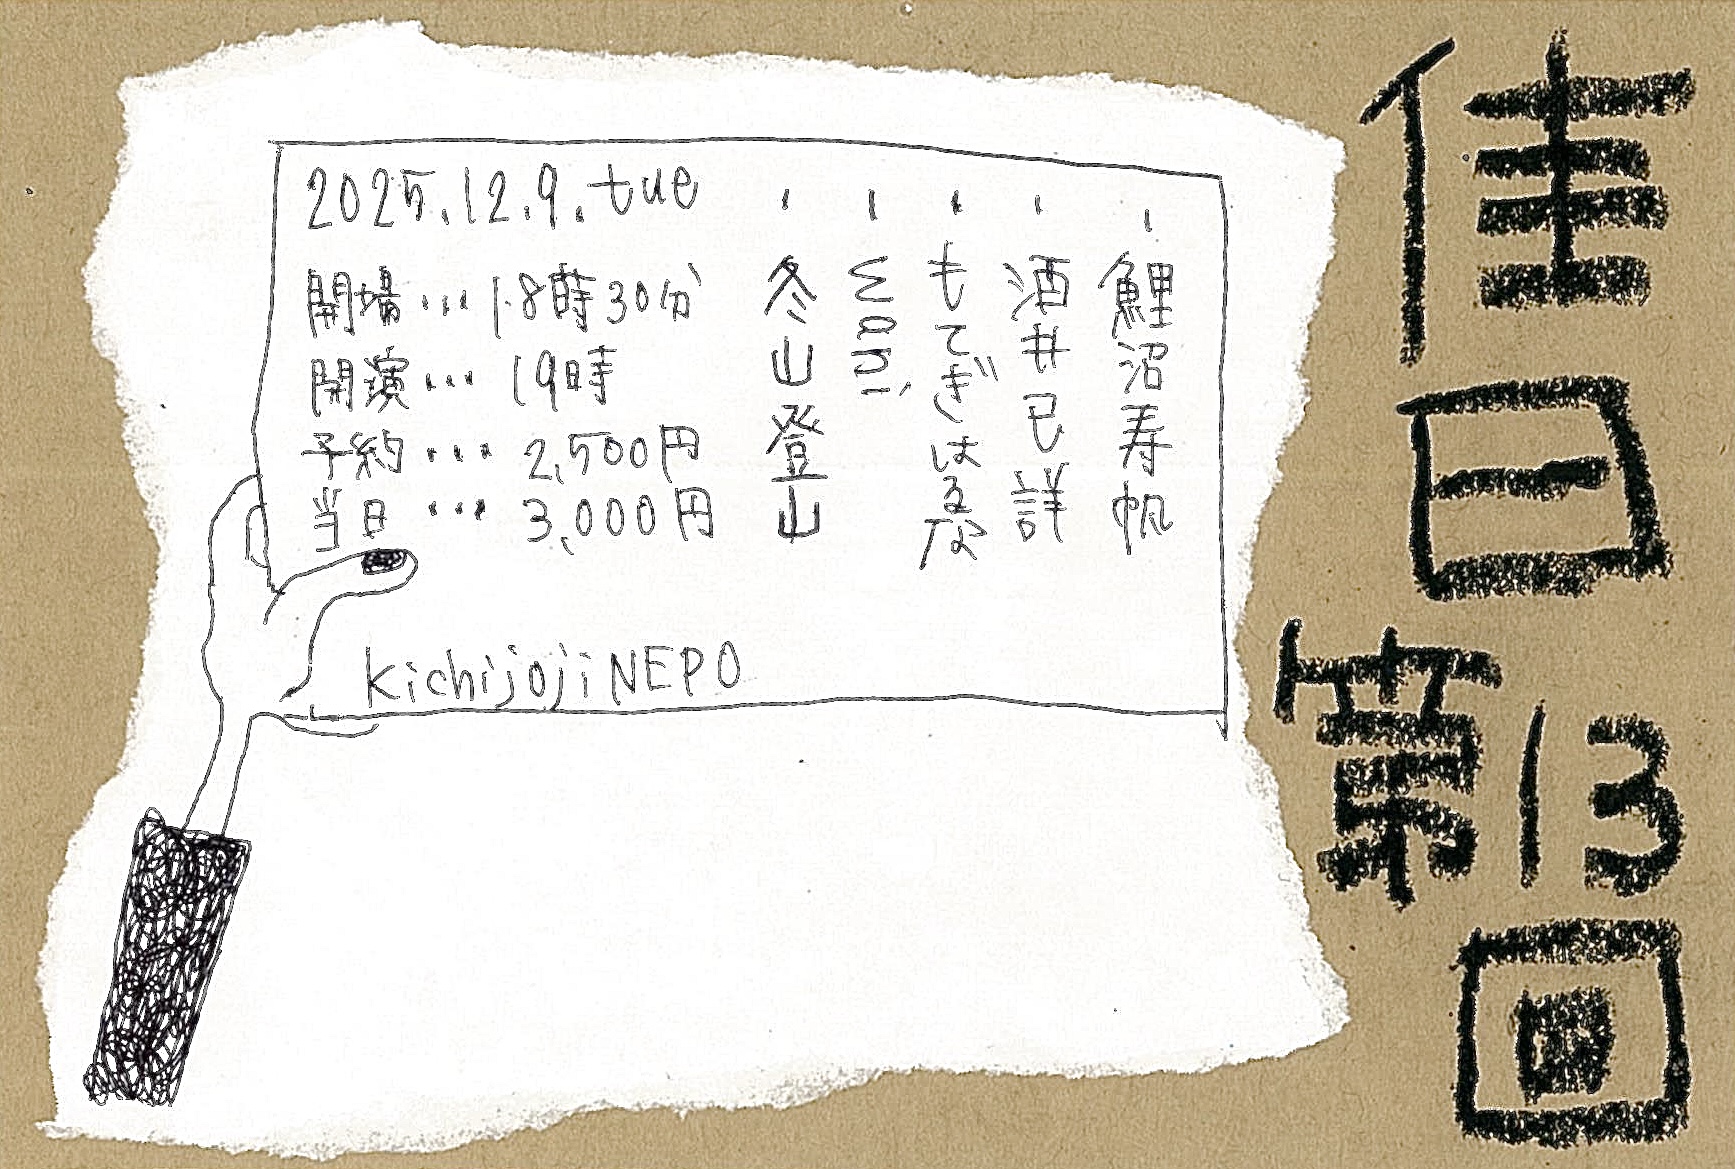 佳日
第13回
2025.12.9.tue
開場…18時30分
開演…19時
予約…2,500円
当日…3,000円
・鯉沼寿帆
・酒井己詳
・もてぎはるな
・冬山登山
kichijoji NEPO